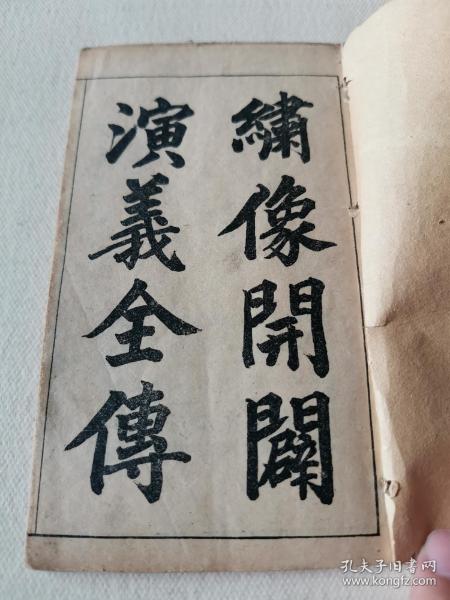 繡像開闢
演義全傳
孔夫子旧书网
www.kongfz.com